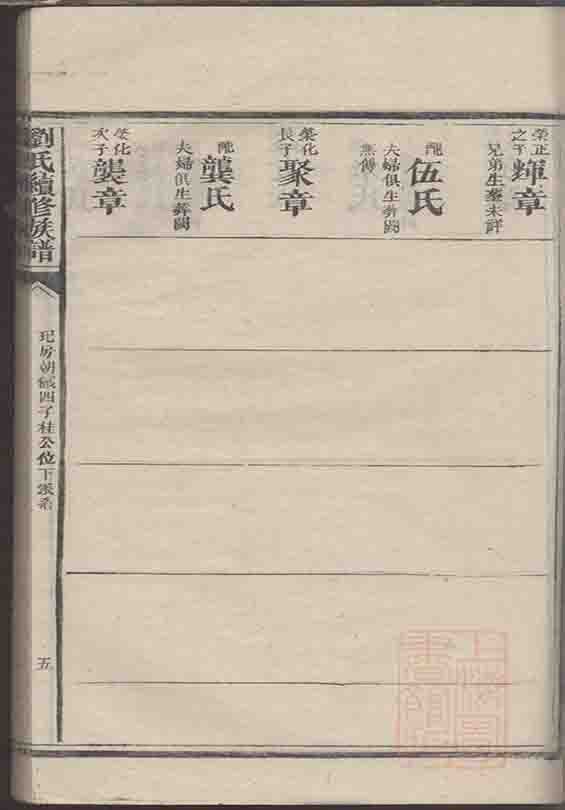 榮正
之子
輝章
兄弟生塟未詳
配
伍氏
夫婦俱生葬闕
無傳
榮化
長子
聚章
配
龔氏
夫婦俱生葬闕
榮化
次子
龔章
劉氏續修族譜
玘房朝
四子桂公位下派系
五